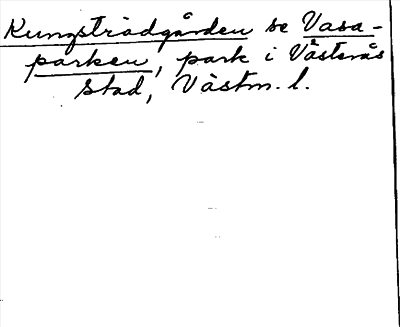 Kungsträdgården se Vasa-
parken, park i Västerås
stad, Västm. l.